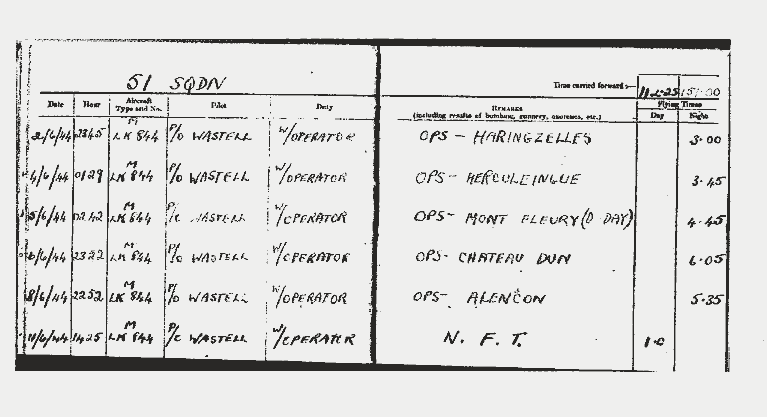 51 SQDN
Time carried forward:— 151.00
Date Hour Aircraft Type and No. Pilot Duty REMARKS (including results of bombing, gunnery, exercises, etc.) Flying Times Day Night
2/6/44 2345 M LK 844 P/O WASTELL W/OPERATOR OPS - HARINGZELLES 3.00
4/6/44 0129 M LK 844 P/O WASTELL W/OPERATOR OPS - HERCULEINGUE 3.45
5/6/44 0242 M LK 844 WASTELL W/OPERATOR OPS - MONT FLEURY (D DAY) 4.45
6/6/44 2322 M LK 844 P/O WASTELL W/OPERATOR OPS - CHATEAU DUN 6.05
8/6/44 2252 M LK 844 P/O WASTELL W/OPERATOR OPS - ALENCON 5.35
11/6/44 1425 M LK 844 WASTELL W/OPERATOR N. F. T. 1.0